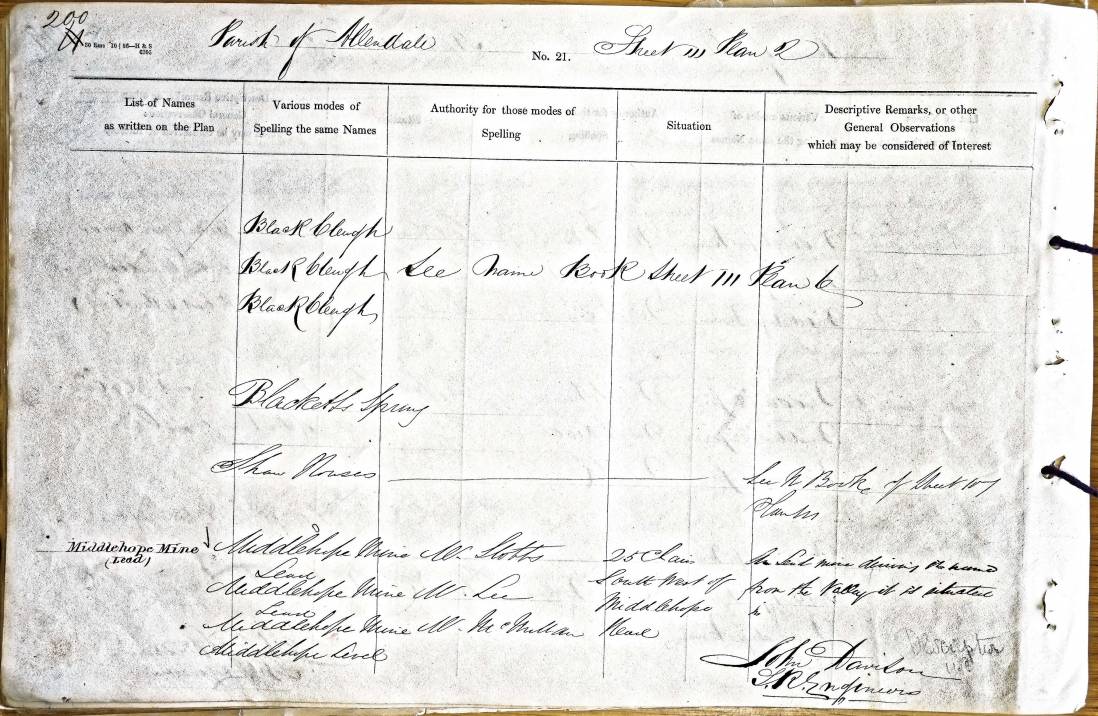 200
Parish of Allendale
No. 21.
Sheet 111 Plan 2
List of Names
as written on the Plan
Various modes of
Spelling the same Names
Authority for those modes of
Spelling
Situation
Descriptive Remarks, or other
General Observations
which may be considered of Interest
Black Cleugh
Black Cleugh See Name Book Sheet 111 Plan 6
Black Cleugh
Blacketts Spring
Shaw Houses
See N Book of Sheet 107
Middlehope Mine
(Lead)
Middlehope Mine W. Stotts
Lead
Middlehope Mine W. Lee
Lead
Middlehope Mine W. McMillan
Middlehope Level
25 Chain
South West of
Middlehope
Head
from the Valley it is situated
in
John Davison
S.R. Engineers